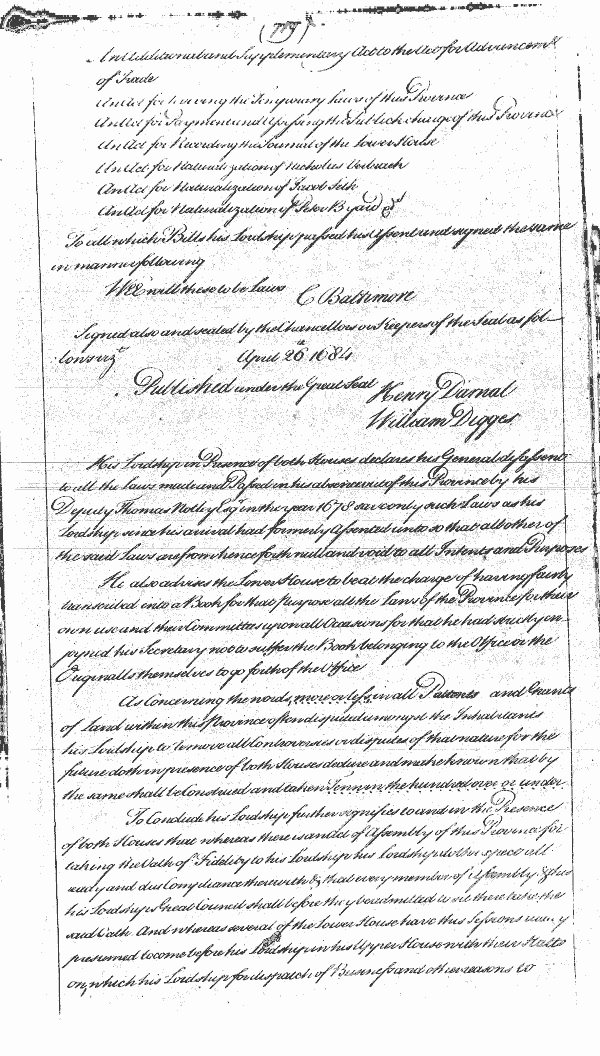 (779)
An Additional and Supplementary Act to the Act for Advancemt
of Trade
An Act for Reviving the Temporary Laws of this Province
An Act for Payment and Assessing the Publick charge of this Province
An Act for Recording the Journal of the Lower House
An Act for Naturalization of Nicholas Verbrach
An Act for Naturalization of Jacob Seth
An Act for Naturalization of Peter Bayard
To all which Bills his Lordship passed his Assent and signed the same
in manner following
Wee will these to be Laws
C Baltimore
Signed also and sealed by the Chancellors or Keepers of the Seal as fol-
lows vizt
April 26th 1684
Published under the Great Seal
Henry Darnal
William Digges
His Lordship in Presence of both Houses declares his General dissent
to all the Laws made and Passed in his absence out of this Province by his
Deputy Thomas Notley Esqr in the year 1678 save only such Laws as his
Lordship since his arrival had formerly Assented unto so that all other of
the said Laws are from henceforth null and void to all Intents and Purposes
He also advises the Lower House to be at the charge of having fairly
transcribed into a Book for that Purpose all the Laws of the Province for their
own use and their Committees upon all Occasions for that he had strictly en-
joyned his Secretary not to suffer the Book belonging to the Office or the
Originalls themselves to go forth of the Office
As Concerning the words, more or less, in all Pattents and Grants
of Land within this Province often disputed amongst the Inhabitants
his Lordship to remove all Controversies or disputes of that nature for the
future doth in presence of both Houses declare and make known that by
the same shall be Construed and taken Tenn in the hundred over or under
To Conclude his Lordship further signifies to and in the Presence
of both Houses that whereas there is an Act of Assembly of this Province for
taking the Oath of Fidelity to his Lordship his Lordship doth expect all
ready and due Complyance therewith & that every member of Assembly & this
his Lordships Great Council shall before they be admitted to sit there take the
said Oath. And whereas several of the Lower House have this Sessions
presumed to come before his Lordship in his Upper House with their Hatts
on, which his Lordship for dispatch of Business and other reasons to